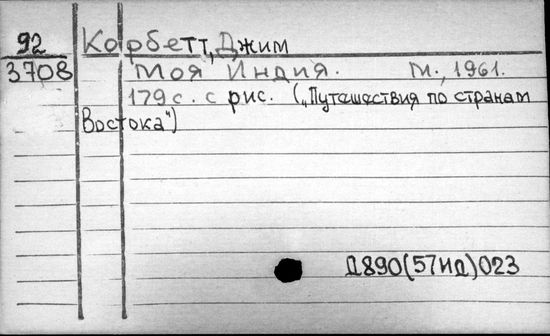 92 Корбетт, Джим
3708 Моя Индия. М., 1961.
179 с. с рис. („Путешествия по странам
Востока")
Д890(57ИД)023